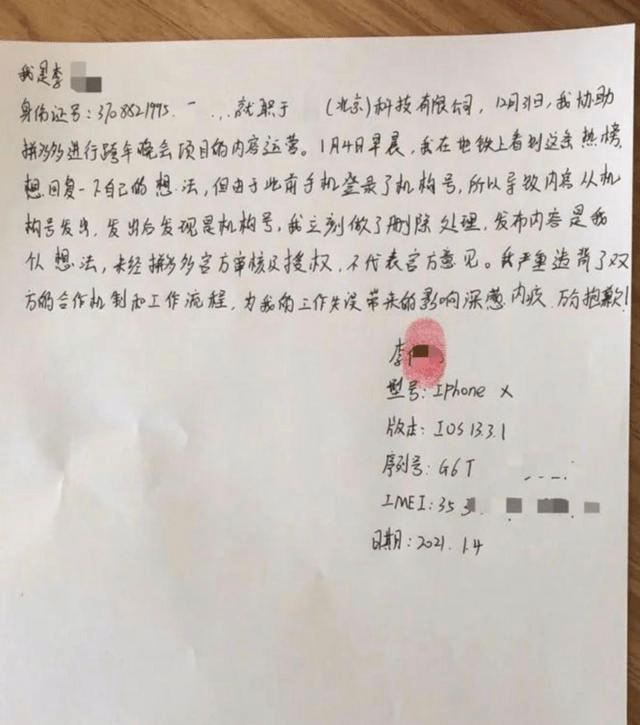 我是李
身份证号:3708821995. 就职于 (北京)科技有限公司, 12月31日, 我协助
拼多多进行跨年晚会项目的内容运营。1月4日早晨, 我在地铁上看到这条热榜,
想回复一下自己的想法, 但由于此前手机登录了机构号, 所以导致内容从机
构号发出, 发出后发现是机构号, 我立刻做了删除处理, 发布内容是我
个人想法, 未经拼多多官方审核及授权, 不代表官方意见。我严重违背了双
方的合作机制和工作流程, 为我的工作失误带来的影响深感内疚 万分抱歉!
李
型号:Iphone X
版本:IOS 13.3.1
序列号:G6T
IMEI:35
日期:2021.1.4